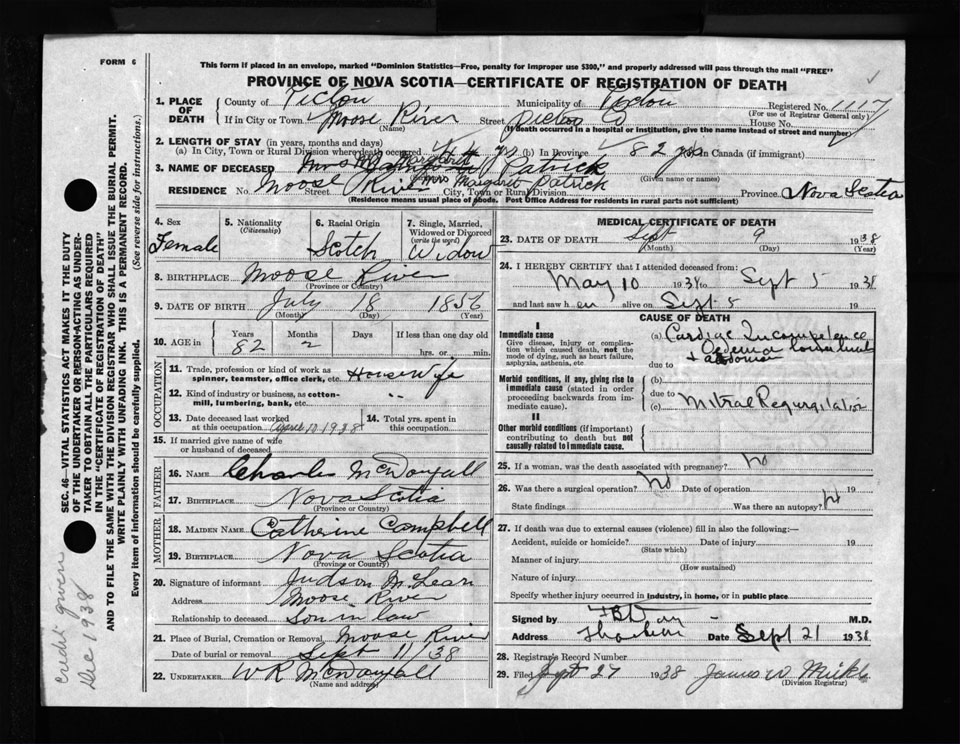 FORM 6
This form if placed in an envelope, marked "Dominion Statistics—Free, penalty for improper use $300," and properly addressed will pass through the mail "FREE"
PROVINCE OF NOVA SCOTIA—CERTIFICATE OF REGISTRATION OF DEATH
1. PLACE OF DEATH County of Pictou Municipality of Pictou Registered No. 1117
(For use of Registrar General only)
If in City or Town Moose River Street Pictou Co House No.
(Name) (If death occurred in a hospital or institution, give the name instead of street and number)
2. LENGTH OF STAY (in years, months and days)
(a) In City, Town or Rural Division where death occurred yrs (b) In Province 82 yrs In Canada (if immigrant)
3. NAME OF DECEASED Margaret Patrick
Mrs Margaret Patrick (Given name or names)
RESIDENCE No. Moose River Street City, Town or Rural Division Province Nova Scotia
(Residence means usual place of abode. Post Office Address for residents in rural parts not sufficient)
4. Sex Female
5. Nationality (Citizenship)
6. Racial Origin Scotch
7. Single, Married, Widowed or Divorced (write the word) Widow
8. BIRTHPLACE Moose River
(Province or Country)
9. DATE OF BIRTH July 18 1856
(Month) (Day) (Year)
10. AGE in Years Months Days If less than one day old
82 2 hrs. or min.
OCCUPATION
11. Trade, profession or kind of work as spinner, teamster, office clerk, etc. House Wife
12. Kind of industry or business, as cotton-mill, lumbering, bank, etc. " "
13. Date deceased last worked at this occupation April 10 1938
14. Total yrs. spent in this occupation
15. If married give name of wife or husband of deceased
FATHER
16. NAME Charles McDougall
17. BIRTHPLACE Nova Scotia
(Province or Country)
MOTHER
18. MAIDEN NAME Catherine Campbell
19. BIRTHPLACE Nova Scotia
(Province or Country)
20. Signature of informant Judson McLean
Address Moose River
Relationship to deceased Son in law
21. Place of Burial, Cremation or Removal Moose River
Date of burial or removal Sept 11/38
22. UNDERTAKER W R McDougall
(Name and address)
MEDICAL CERTIFICATE OF DEATH
23. DATE OF DEATH Sept 9 1938
(Month) (Day) (Year)
24. I HEREBY CERTIFY that I attended deceased from:
May 10 1938 to Sept 5 1938
and last saw her alive on Sept 5
CAUSE OF DEATH
I
Immediate cause
Give disease, injury or complication which caused death, not the mode of dying, such as heart failure, asphyxia, asthenia, etc.
(a) Cardiac Incompetence
Oedema
+ abdomen
due to
Morbid conditions, if any, giving rise to immediate cause (stated in order proceeding backwards from immediate cause).
(b)
due to
(c) Mitral Regurgitation
II
Other morbid conditions (if important) contributing to death but not causally related to immediate cause.
25. If a woman, was the death associated with pregnancy? No
26. Was there a surgical operation? No Date of operation 19
State findings Was there an autopsy? N
27. If death was due to external causes (violence) fill in also the following:—
Accident, suicide or homicide? Date of injury 19
(State which)
Manner of injury
(How sustained)
Nature of injury
Specify whether injury occurred in industry, in home, or in public place
Signed by M.D.
Address Date Sept 21 1938
28. Registrar's Record Number
29. Filed Sept 27 1938 James W
(Division Registrar)
SEC. 46—VITAL STATISTICS ACT MAKES IT THE DUTY
OF THE UNDERTAKER OR PERSON ACTING AS UNDER-
TAKER TO OBTAIN ALL THE PARTICULARS REQUIRED
IN THE "CERTIFICATE OF REGISTRATION OF DEATH"
AND TO FILE THE SAME WITH THE DIVISION REGISTRAR WHO SHALL ISSUE THE BURIAL PERMIT.
WRITE PLAINLY WITH UNFADING INK. THIS IS A PERMANENT RECORD.
Every item of information should be carefully supplied. (See reverse side for instructions.)
credit given
Dec 1938